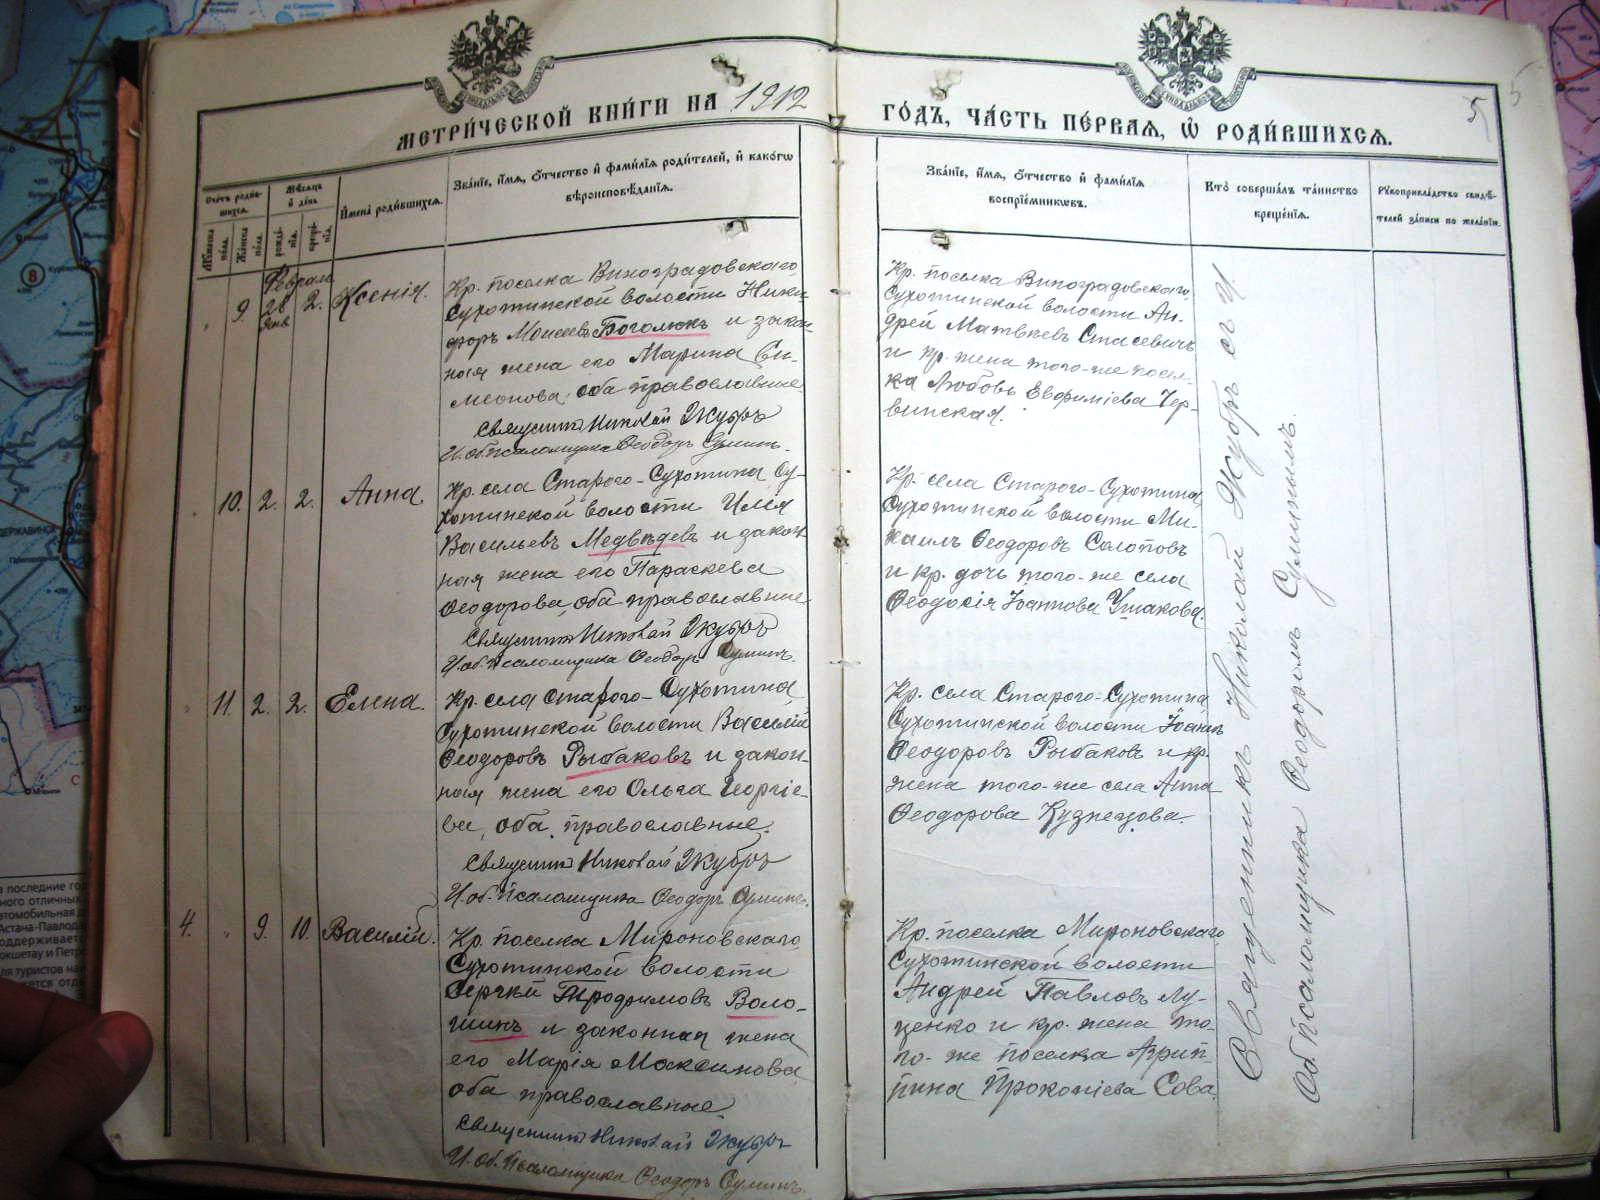 МЕТРИ́ЧЕСКОЙ КНИ́ГИ НА 1912
ГО́ДЪ, ЧА́СТЬ ПЕ́РВАЯ, Ѡ РОДИ́ВШИХСЯ.
5
Счетъ роди́вшихся.
Мѣсяцъ и день
Имена роди́вшихся.
Зва́нїе, и҆́мѧ, о҆́тчество и҆ фами́лїѧ роди́телей, и҆ како́гѡ
вѣроисповѣ́данїѧ.
Зва́нїе, и҆́мѧ, о҆́тчество и҆ фами́лїѧ
воспрїе́мникѡвъ.
Кто̀ соверша́лъ та́инство
креще́нїѧ.
Рꙋкоприкла́дство свидѣ́-
телей за́писи по жела́нїю.
Мꙋжеска по́ла.
Же́нска по́ла.
рожде́-нїѧ.
креще́-нїѧ.
9. Феврал. 28 Янв 2. Ксенія.
Кр. поселка Виноградовскаго,
Сухотинской волости Ники-
форъ Моисеевъ Боголюкъ и закон-
ная жена его Марина Си-
меонова, оба православные
Священникъ Николай Якубъ
И. об. псаломщика Ѳеодоръ Сулимъ.
Кр. поселка Виноградовскаго,
Сухотинской волости Ан-
дрей Матвѣевъ Стасевичъ
и кр. жена того-же посел-
ка Любовь Евфиміева Чер-
винская.
10. 2. 2. Анна.
Кр. села Старого-Сухотина Су-
хотинской волости Илія
Васильевъ Медвѣдевъ и закон-
ная жена его Параскева
Ѳеодорова, оба православные
Священникъ Николай Якубъ
И. об. псаломщика Ѳеодоръ Сулимъ.
Кр. села Старого-Сухотина,
Сухотинской волости Ми-
хаилъ Ѳеодоровъ Солоповъ
и кр. дочь того-же села
Ѳеодосія Іоаннова Ушакова.
11. 2. 2. Елена.
Кр. села Старого-Сухотина,
Сухотинской волости Василій
Ѳеодоровъ Рыбаковъ и закон-
ная жена его Ольга Георгіе-
ва, оба православные.
Священникъ Николай Якубъ
И. об. псаломщика Ѳеодоръ Сулимъ.
Кр. села Старого-Сухотина,
Сухотинской волости Іоаннъ
Ѳеодоровъ Рыбаковъ и кр.
жена того-же села Анна
Ѳеодорова Кузнецова.
4. 9. 10. Василій.
Кр. поселка Мироновскаго,
Сухотинской волости
Сергѣй Трофимовъ Воло-
шинъ и законная жена
его Марія Максимова,
оба православные.
Священникъ Николай Якубъ
И. об. псаломщика Ѳеодоръ Сулимъ.
Кр. поселка Мироновскаго,
Сухотинской волости
Андрей Павловъ Лу-
ценко и кр. жена то-
го-же поселка Агрип-
пина Прокопіева Сова.
Священникъ Николай Якубъ съ И.
Об. псаломщика Ѳеодоромъ Сулимымъ.